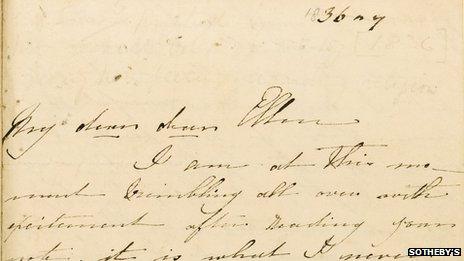 1836 or 7
My dear dear Ellen
I am at this mo-
ment trembling all over with
excitement after reading your
note, it is what I never
SOTHEBY'S